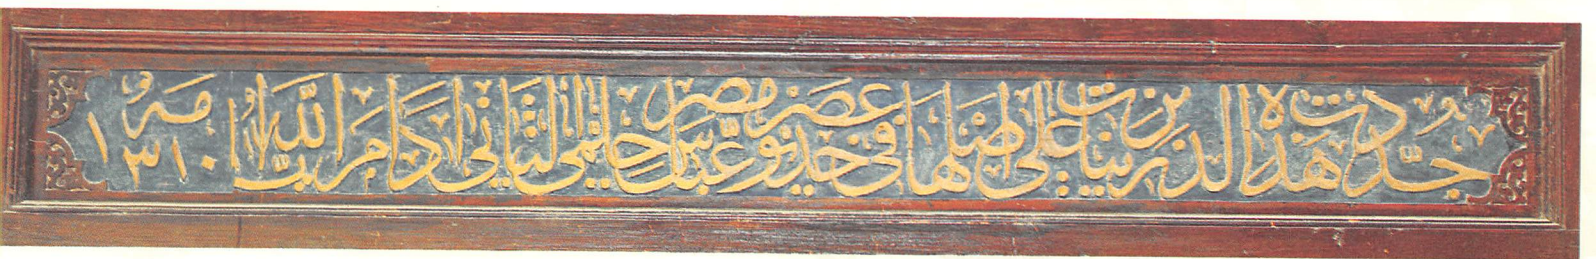 جُدِّدت هذه الدربزينات على اصلها فى عصر خديو مصر عبّاس حلمى الثانى ادام اللّه ايامه ١٣١٠